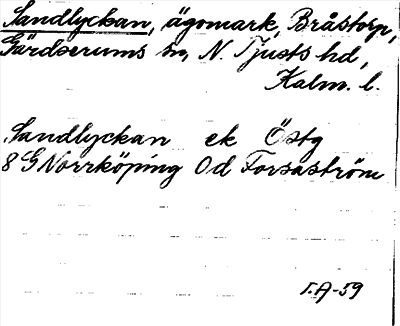 Sandlyckan, ägomark, Bråstorp,
Gärdserums sn, N. Tjusts hd,
Kalm. l.
Sandlyckan ek Östg
8 G Norrköping 0d Forsaström
T.A-59